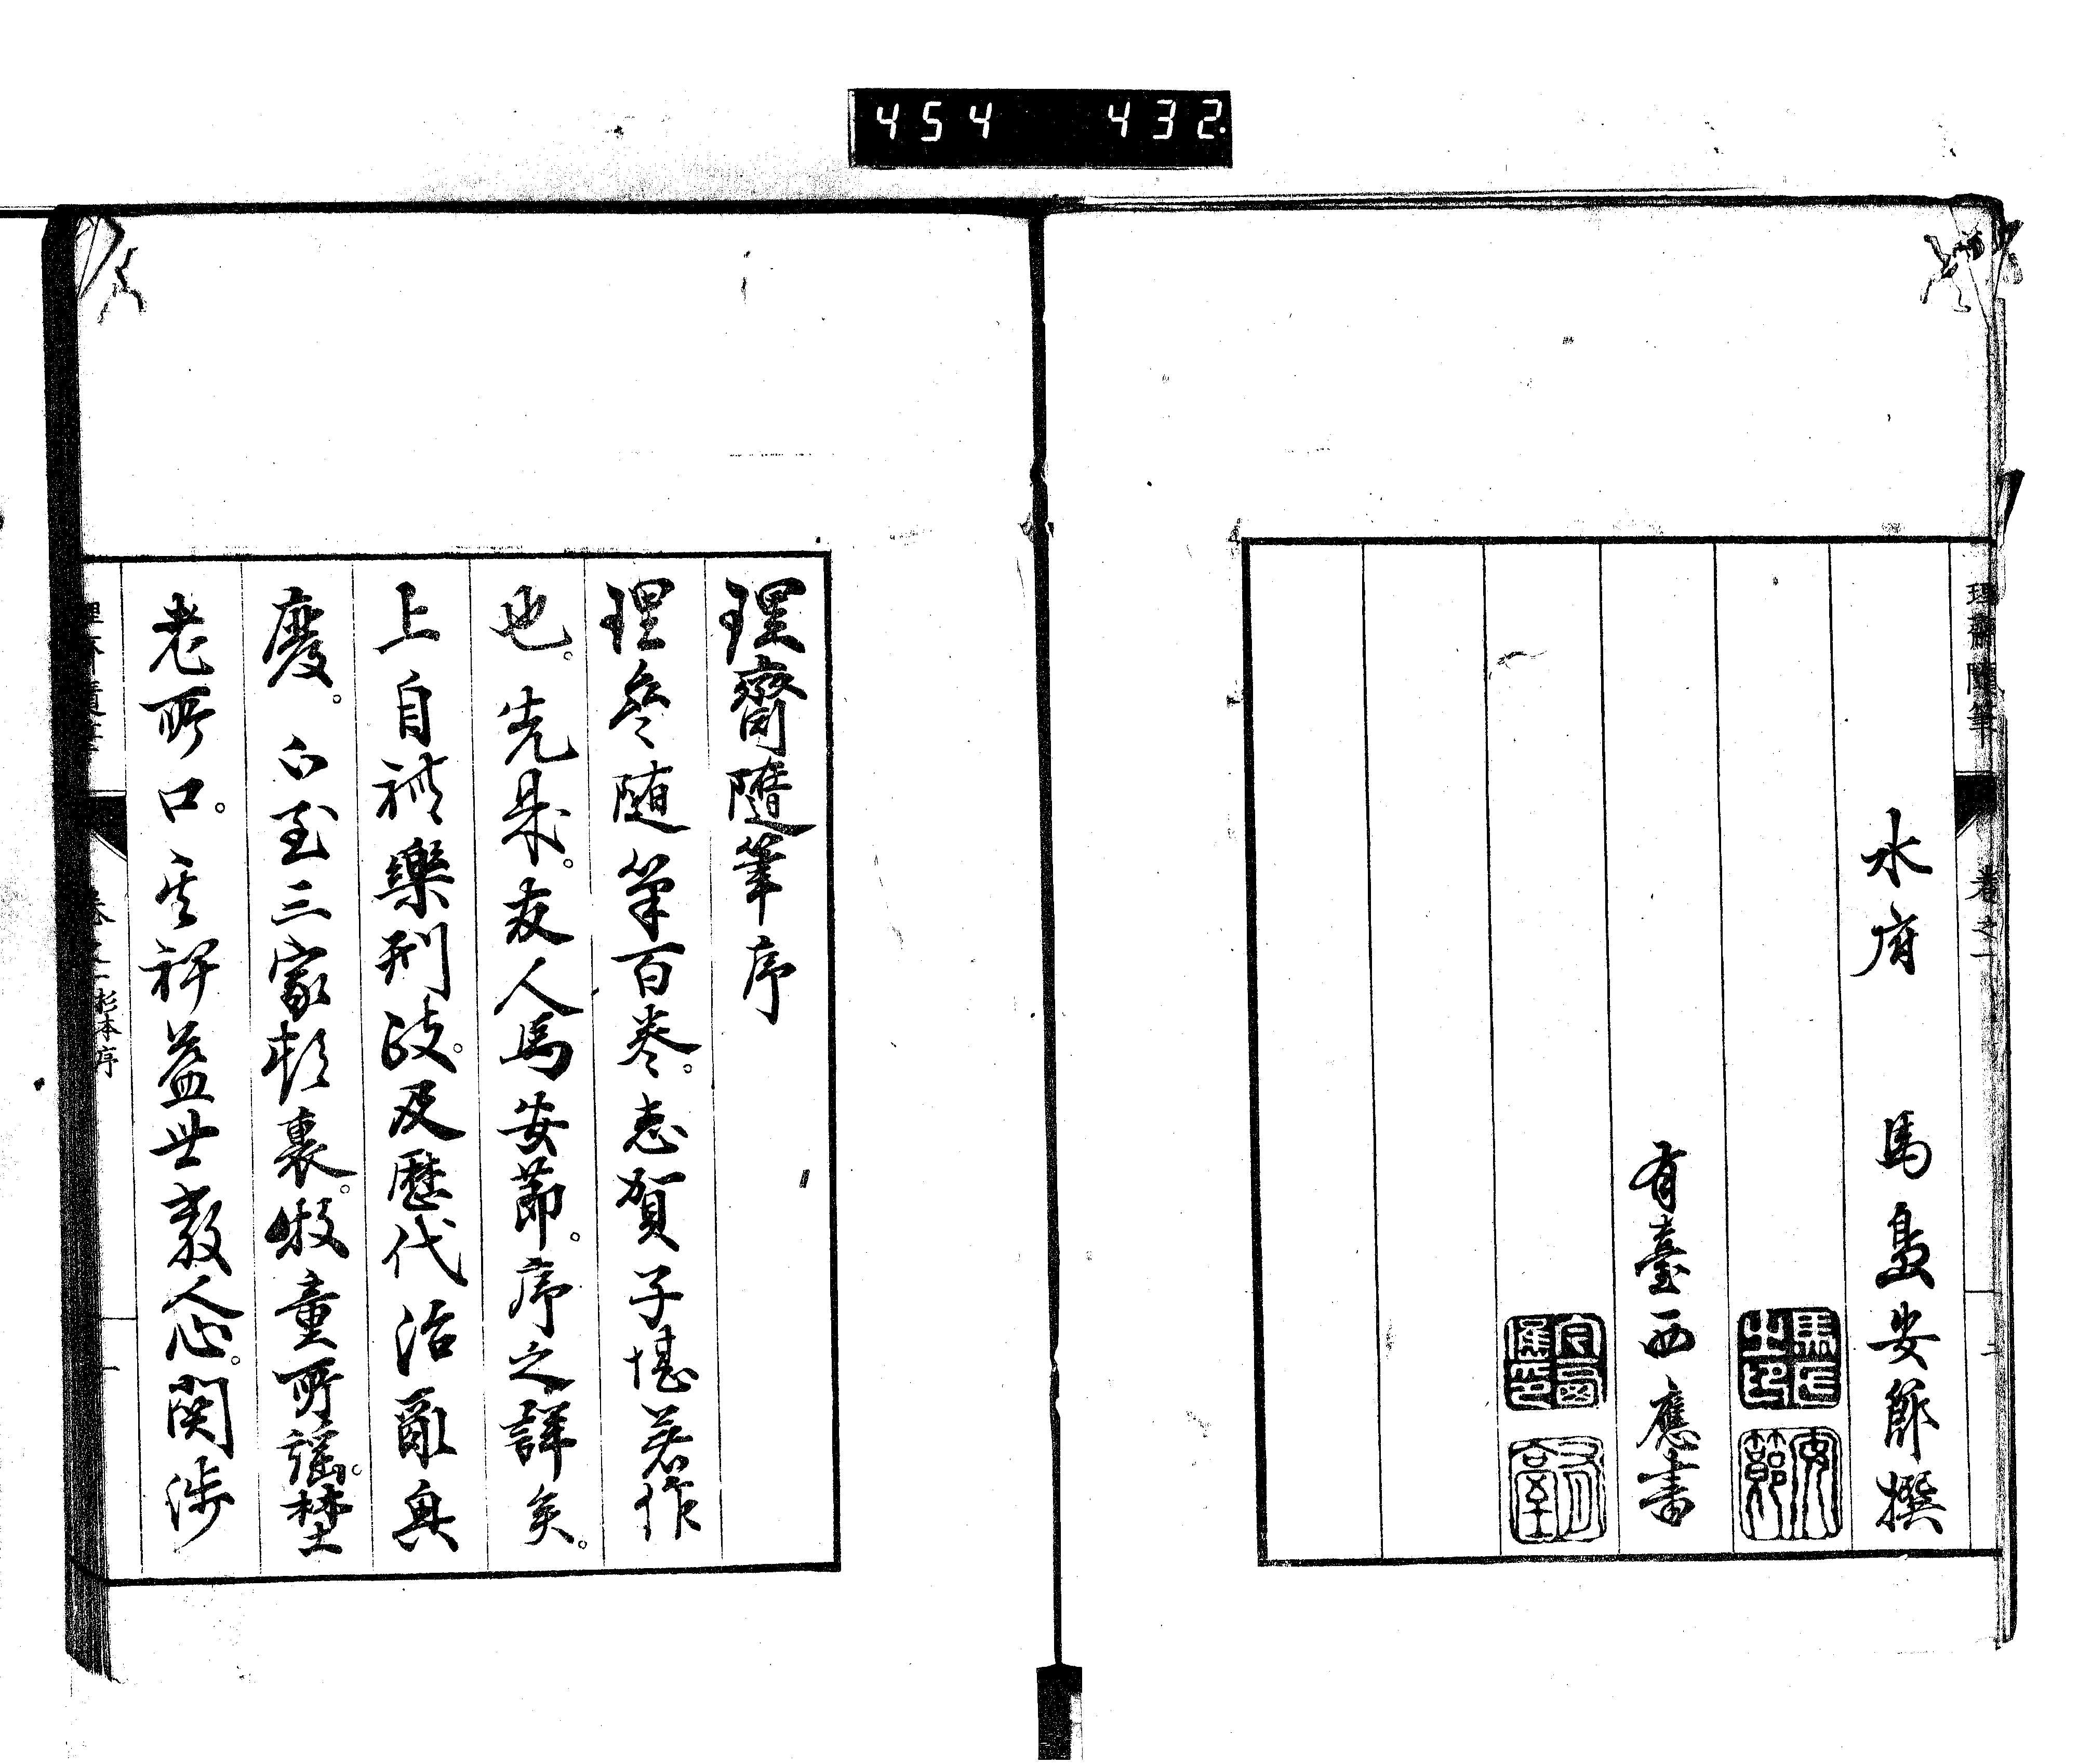 454 432
理齋隨筆 卷之一 二
水府 馬島安節撰
有臺西應書
理齋隨筆序
理參随筆百卷。志賀子堪著作
也。先是。友人馬安節。序之詳矣。
上自禮樂刑政。及歷代治亂興
廢。下至三家邨裏。牧童所謡。埜
老所口。其裨益世教人心。関渉
卷之一 杉本序 一